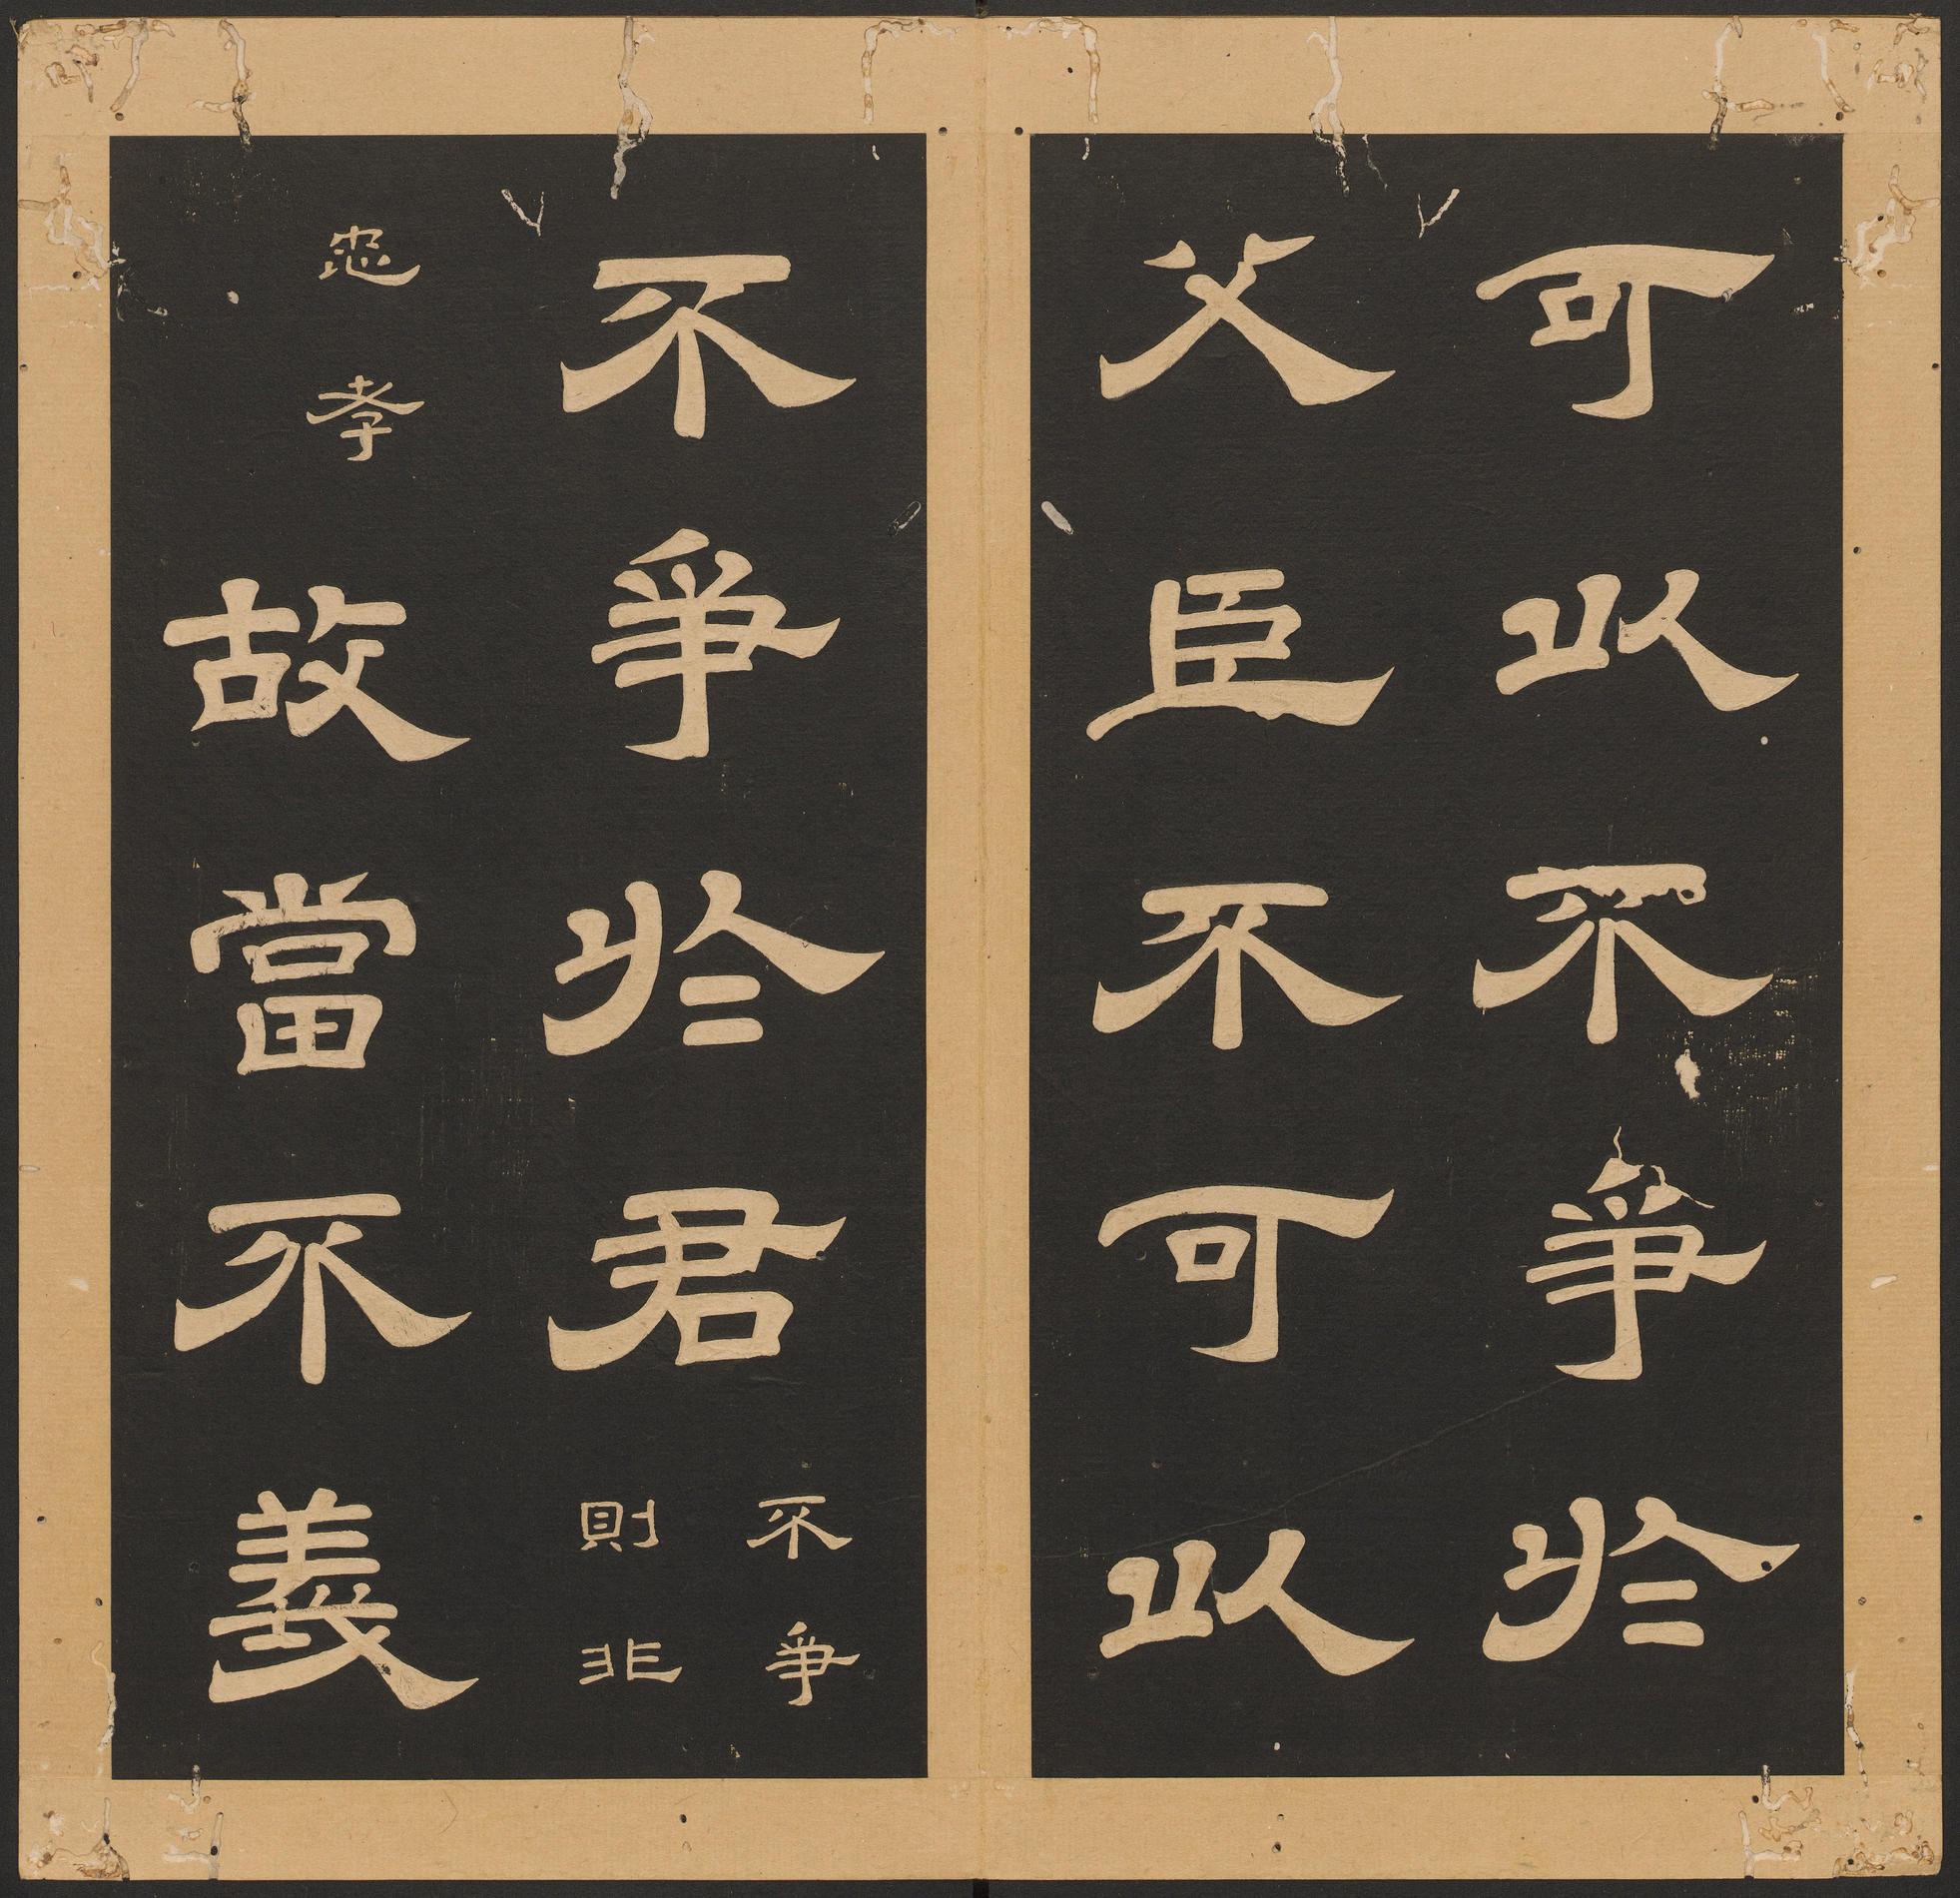 可以不爭於
父臣不可以
不爭於君不爭
則非
忠孝故當不義